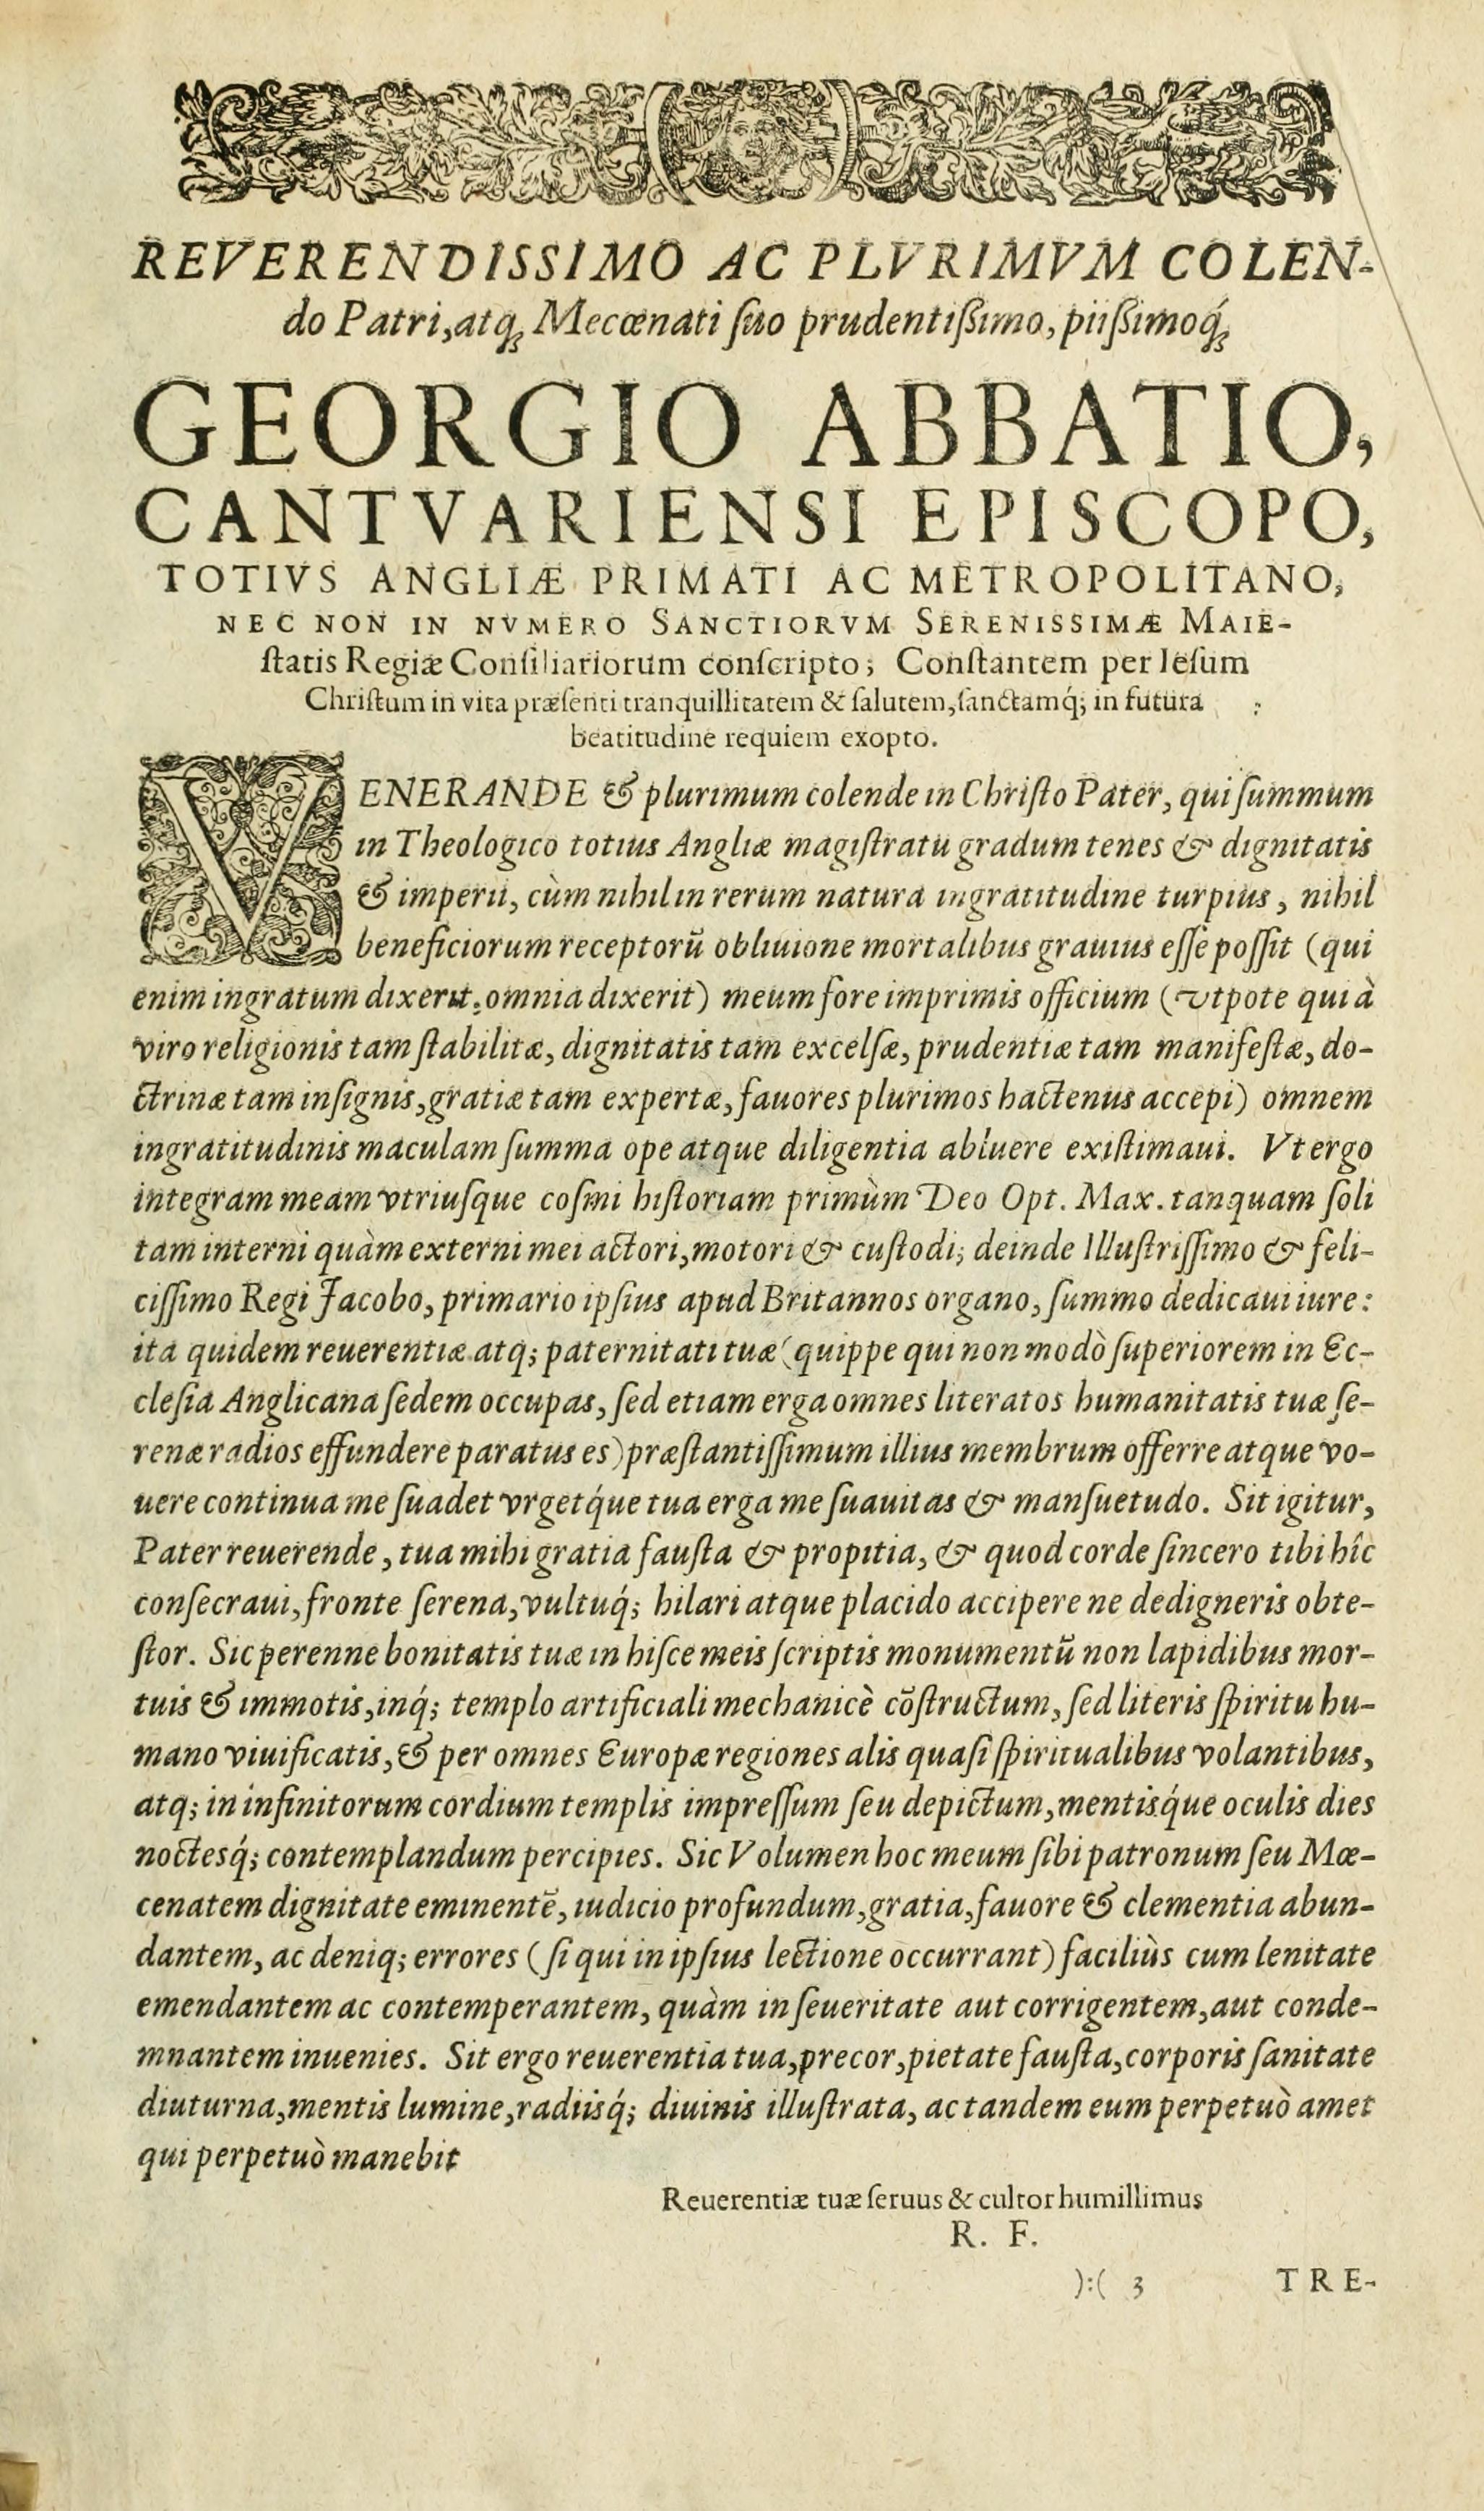 REVERENDISSIMO AC PLVRIMVM COLEN-
do Patri, atq́ꝫ Mecœnati ſuo prudentiſsimo, piiſsimoq́ꝫ
GEORGIO ABBATIO,
CANTVARIENSI EPISCOPO,
TOTIVS ANGLIÆ PRIMATI AC METROPOLITANO,
NEC NON IN NVMERO SANCTIORVM SERENISSIMÆ MAIE-
ſtatis Regiæ Conſiliariorum conſcripto; Conſtantem per Ieſum
Chriſtum in vita præſenti tranquillitatem & ſalutem, ſanctamq́; in futura
beatitudine requiem exopto.
VENERANDE & plurimum colende in Chriſto Pater, qui ſummum
in Theologico totius Angliæ magiſtratu gradum tenes & dignitatis
& imperii, cùm nihil in rerum natura ingratitudine turpius, nihil
beneficiorum receptorũ obliuione mortalibus grauius eſſe poſſit (qui
enim ingratum dixerit, omnia dixerit) meum fore imprimis officium (vtpote qui à
viro religionis tam ſtabilitæ, dignitatis tam excelſæ, prudentiæ tam manifeſtæ, do-
ctrinæ tam inſignis, gratiæ tam expertæ, fauores plurimos hactenus accepi) omnem
ingratitudinis maculam ſumma ope atque diligentia abluere exiſtimaui. Vt ergo
integram meam vtriuſque coſmi hiſtoriam primùm Deo Opt. Max. tanquam ſoli
tam interni quàm externi mei actori, motori & cuſtodi; deinde Illuſtriſſimo & feli-
ciſſimo Regi Jacobo, primario ipſius apud Britannos organo, ſummo dedicaui iure:
ita quidem reuerentiæ atq; paternitati tuæ (quippe qui non modò ſuperiorem in Ec-
cleſia Anglicana ſedem occupas, ſed etiam erga omnes literatos humanitatis tuæ ſe-
renæ radios effundere paratus es) præſtantiſſimum illius membrum offerre atque vo-
uere continua me ſuadet vrgetq́ue tua erga me ſuauitas & manſuetudo. Sit igitur,
Pater reuerende, tua mihi gratia fauſta & propitia, & quod corde ſincero tibi hîc
conſecraui, fronte ſerena, vultuq́; hilari atque placido accipere ne dedigneris obte-
ſtor. Sic perenne bonitatis tuæ in hiſce meis ſcriptis monumentũ non lapidibus mor-
tuis & immotis, inq́; templo artificiali mechanicè cõſtructum, ſed literis ſpiritu hu-
mano viuificatis, & per omnes Europæ regiones alis quaſi ſpiritualibus volantibus,
atq; in infinitorum cordium templis impreſſum ſeu depictum, mentisq́ue oculis dies
noctesq́; contemplandum percipies. Sic Volumen hoc meum ſibi patronum ſeu Mœ-
cenatem dignitate eminentẽ, iudicio profundum, gratia, fauore & clementia abun-
dantem, ac deniq; errores (ſi qui in ipſius lectione occurrant) faciliùs cum lenitate
emendantem ac contemperantem, quàm in ſeueritate aut corrigentem, aut conde-
mnantem inuenies. Sit ergo reuerentia tua, precor, pietate fauſta, corporis ſanitate
diuturna, mentis lumine, radiisq́; diuinis illuſtrata, ac tandem eum perpetuò amet
qui perpetuò manebit
Reuerentiæ tuæ ſeruus & cultor humillimus
R. F.
):( 3 TRE-